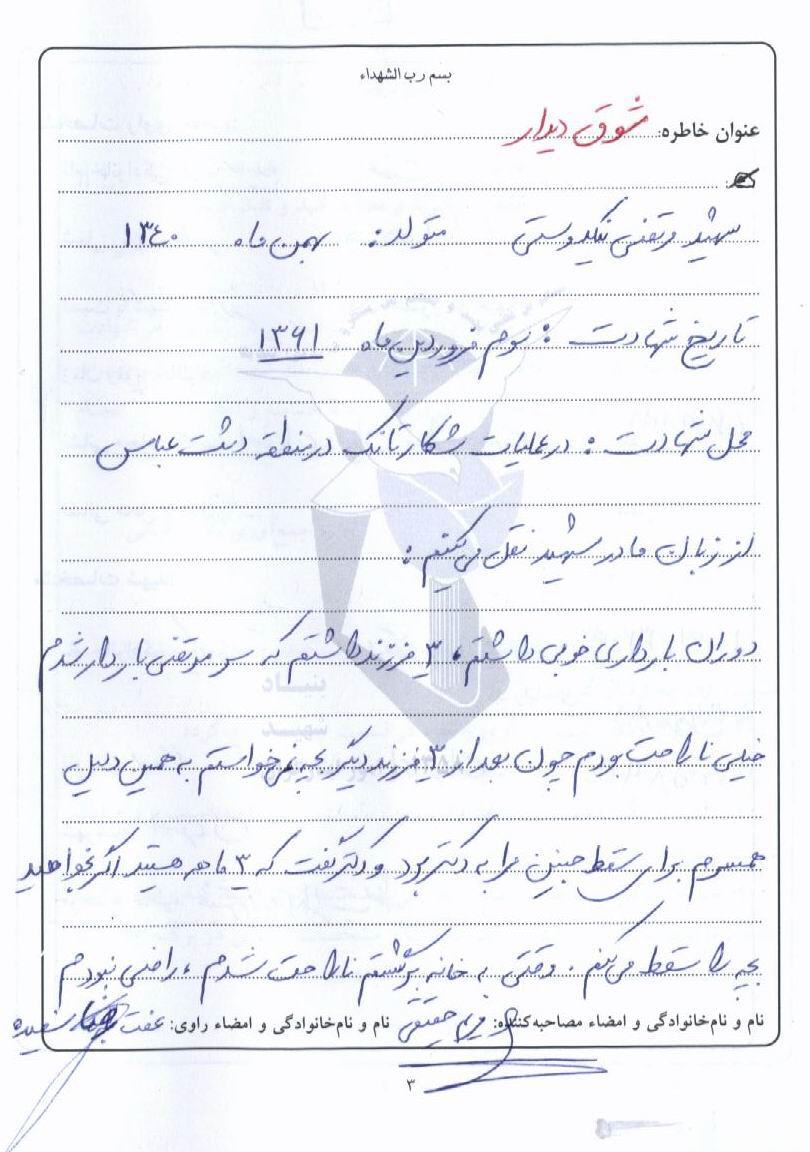 بسم رب الشهداء
عنوان خاطره: شوق دیدار
شهید مرتضی نیکدوستی متولد: بهمن ماه ۱۳۴۰
تاریخ شهادت: سوم فروردین ماه ۱۳۶۱
محل شهادت: در عملیات شکار تانک در منطقه دشت عباس
از زبان مادر شهید نقل می‌کنیم:
دوران بارداری خوبی داشتم، ۳ فرزند داشتم که سر مرتضی باردار شدم
خیلی ناراحت بودم چون بعد از ۳ فرزند دیگر بچه نمی‌خواستم به همین دلیل
همسرم برای سقط جنین مرا به دکتر برد و دکتر گفت که ۳ ماهه هستید اگر بخواهید
بچه را سقط می‌کنم. وقتی به خانه برگشتم ناراحت شدم، راضی نبودم
نام و نام‌خانوادگی و امضاء مصاحبه‌کننده: مریم حقیقی نام و نام‌خانوادگی و امضاء راوی: عفت
۳